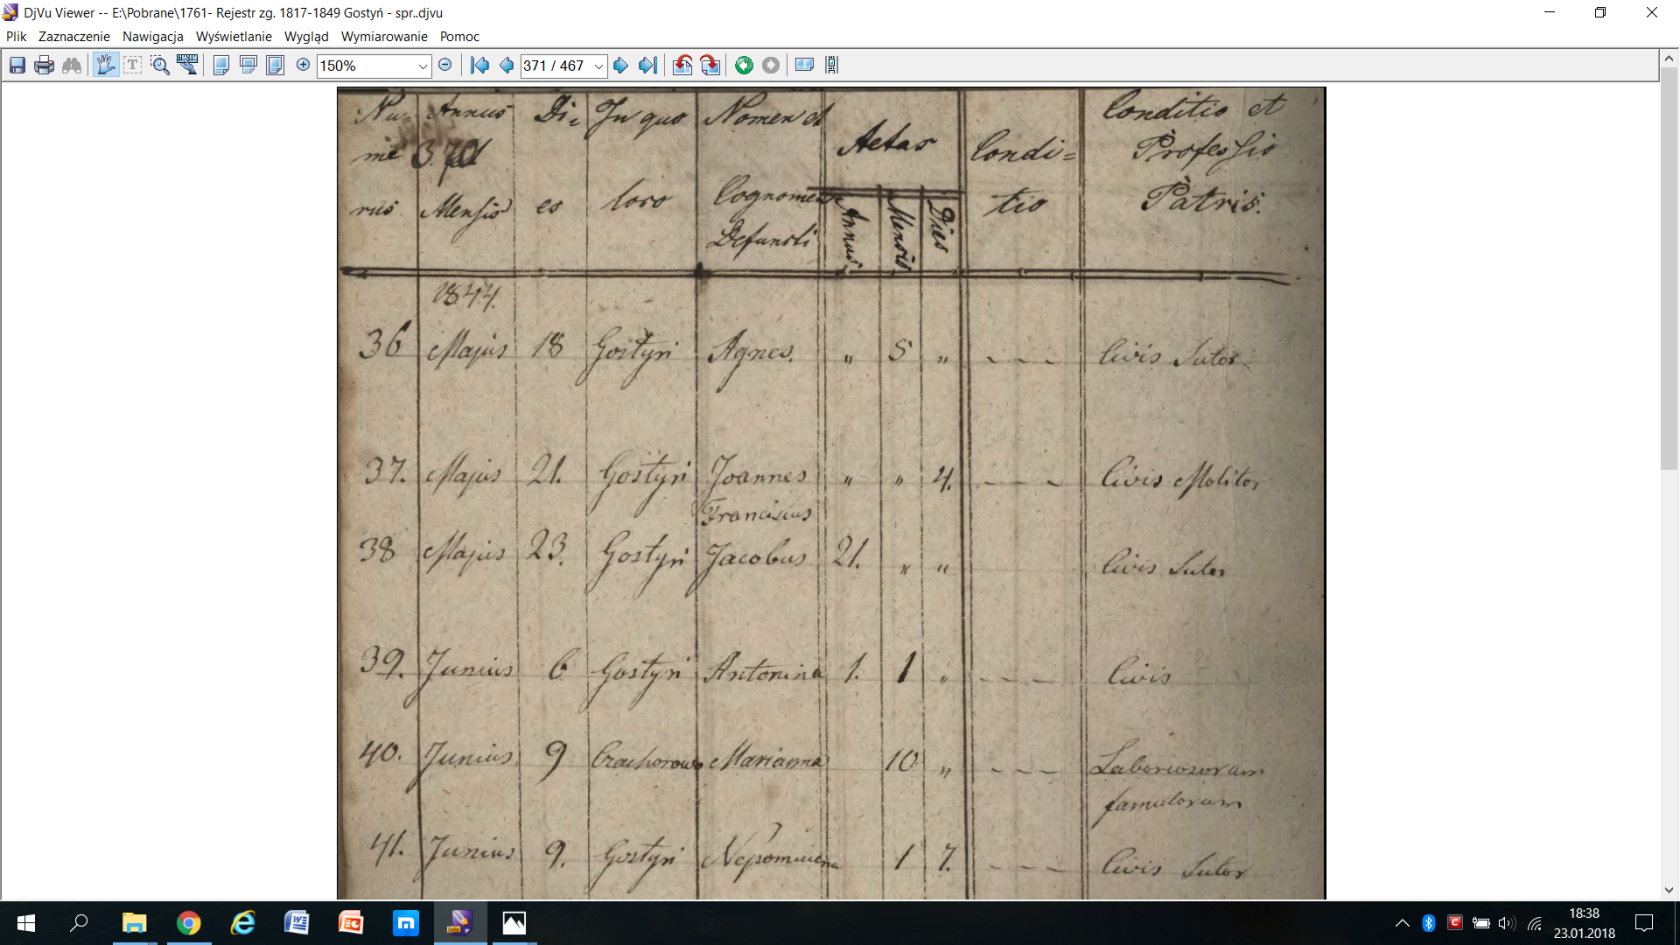 DjVu Viewer -- E:\Pobrane\1761- Rejestr zg. 1817-1849 Gostyń - spr..djvu
Plik Zaznaczenie Nawigacja Wyświetlanie Wygląd Wymiarowanie Pomoc
150% 371 / 467
Nu- Annus Di= In quo Nomen et Aetas Condi= Conditio et
me 370 Professio
rus Mensis es loco Cognomen tio Patris.
Defuncti Annus Mensis Dies
1844.
36 Majus 18 Gostyń Agnes. " 5 " - - - Civis Sutor
37. Majus 21. Gostyń Joannes " " 4. - - - Civis Molitor
Franciscus
38 Majus 23. Gostyń Jacobus 21. " " Civis Sutor
39. Junius 6 Gostyń Antonina 1. 1 " - - - Civis
40. Junius 9 Marianna 10 " - - - Laboriosorum
famulorum
41. Junius 9. Gostyń Nepomucena 1 7. - - - Civis Sutor
18:38
23.01.2018